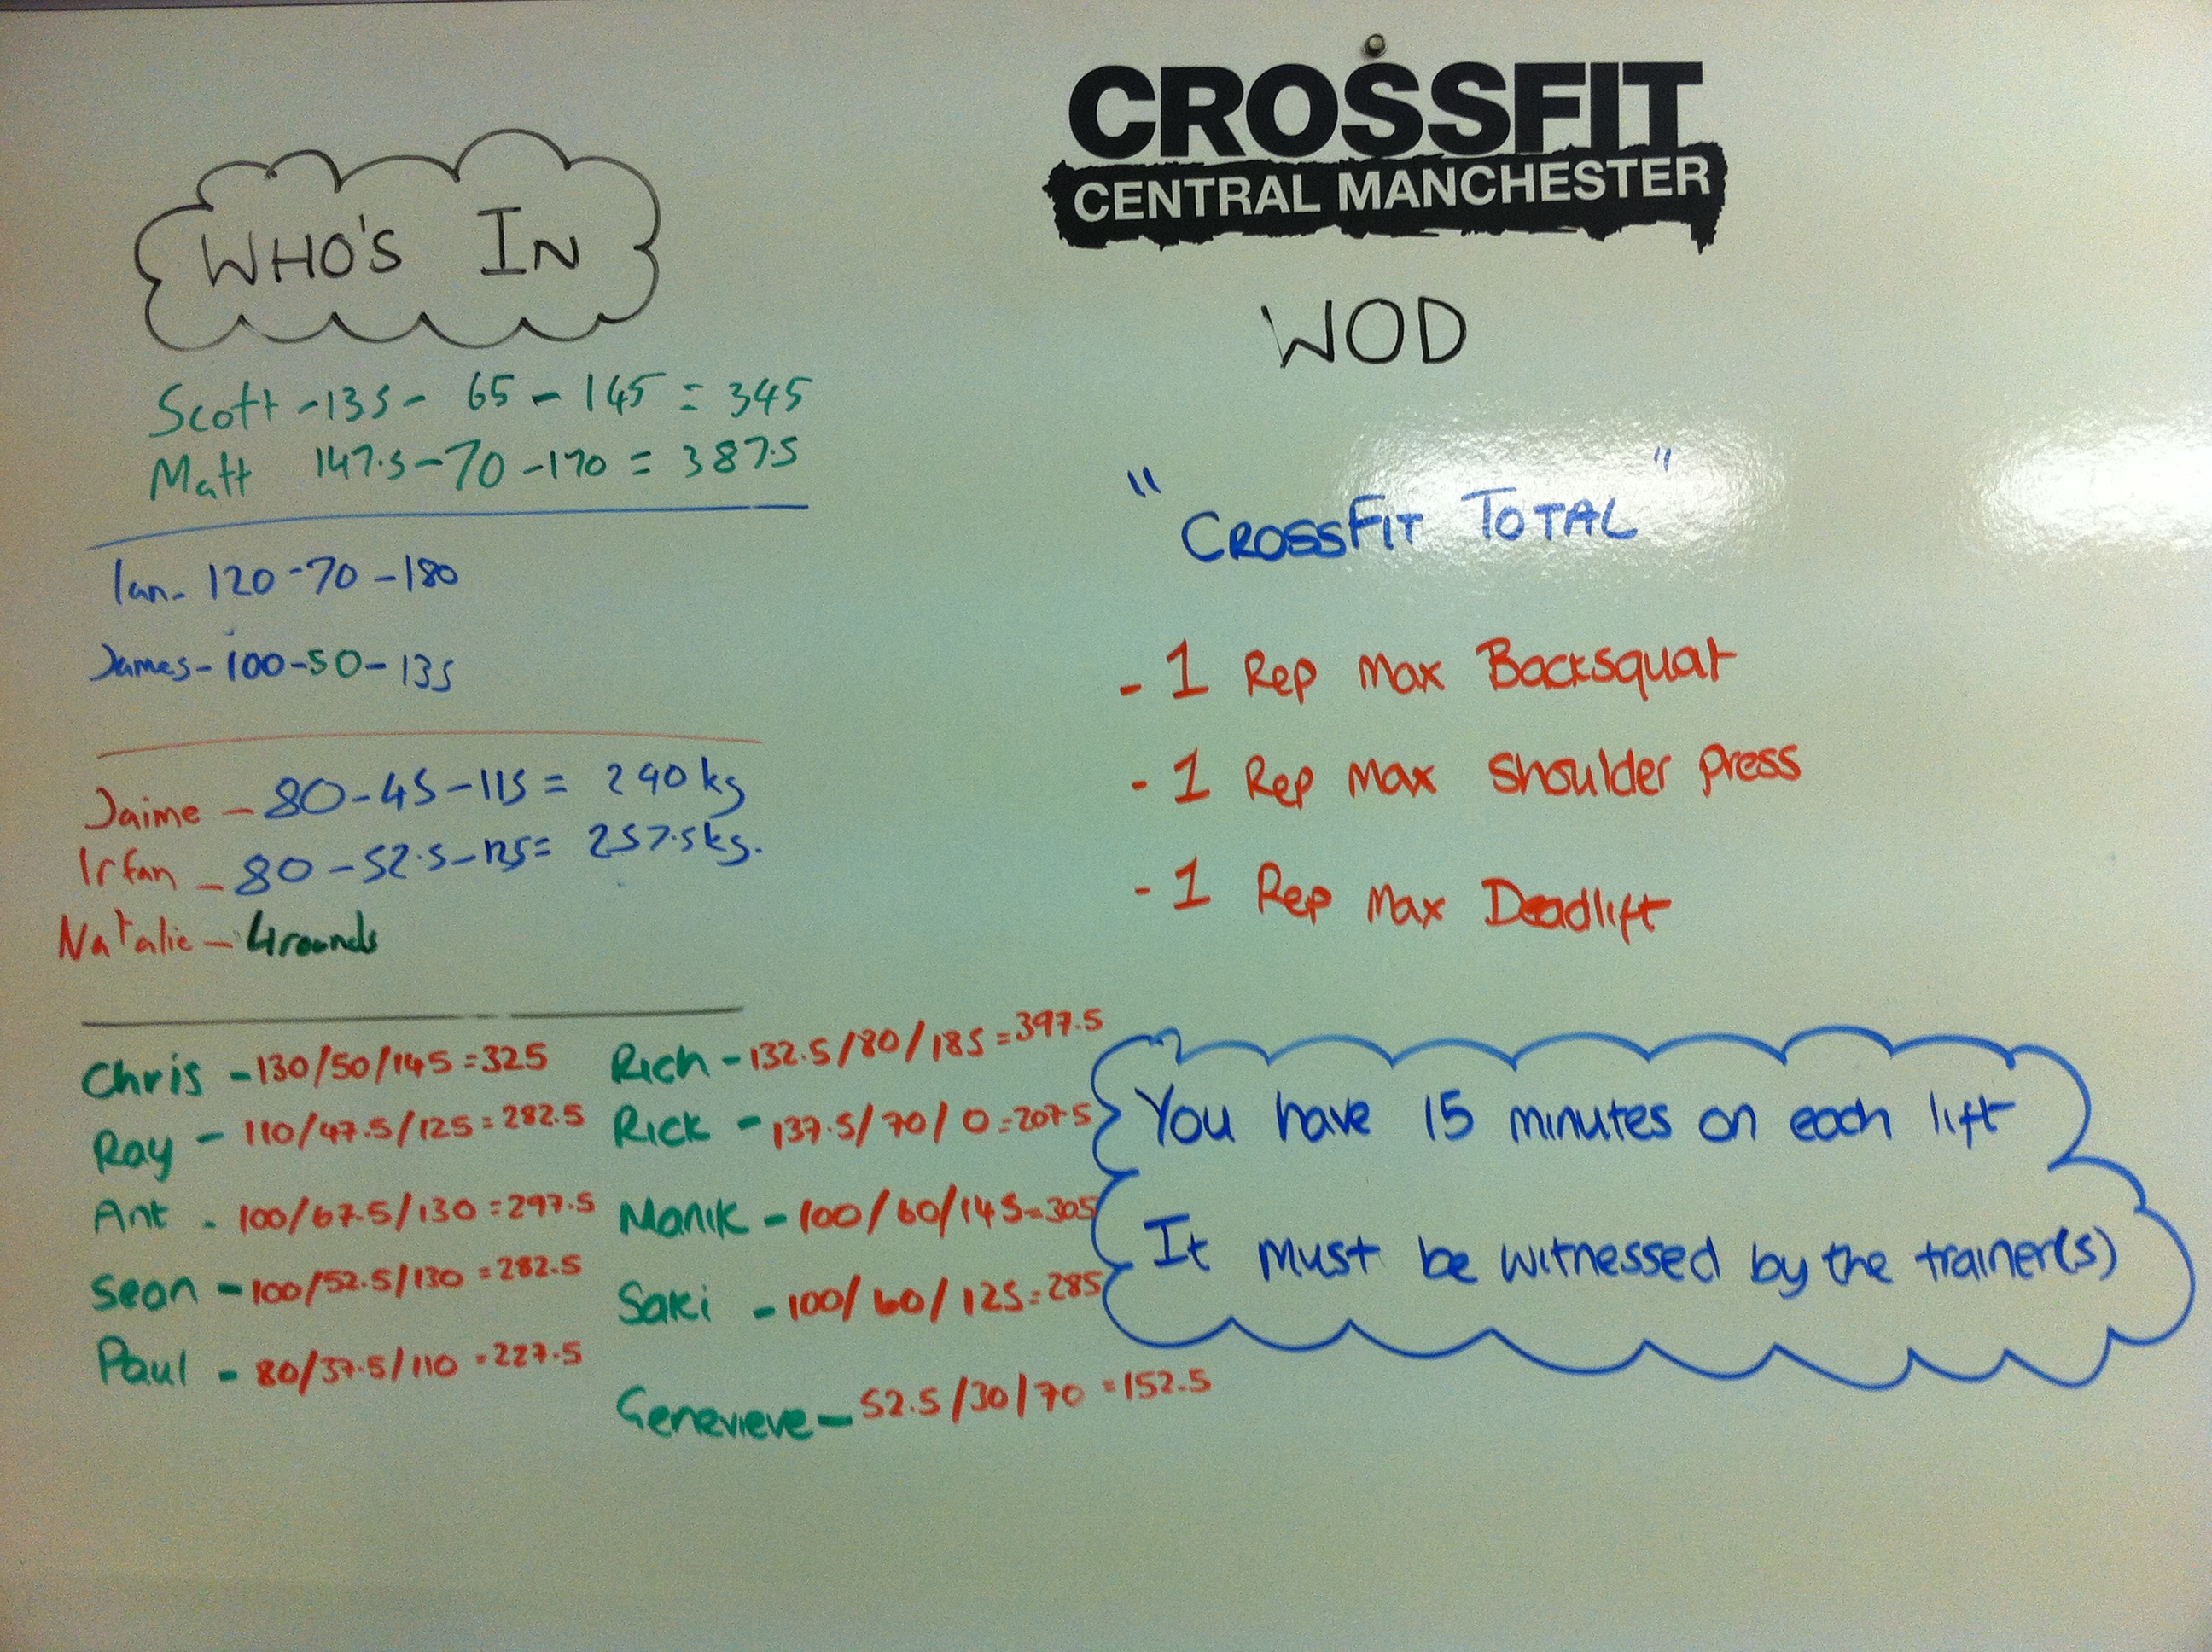 WHO'S IN
Scott - 135 - 65 - 145 = 345
Matt 147.5 - 70 - 170 = 387.5
Ian - 120 - 70 - 180
James - 100 - 50 - 135
Jaime - 80 - 45 - 115 = 240 kg
Irfan - 80 - 52.5 - 125 = 257.5 kg.
Natalie - 4 rounds
Chris - 130/50/145 = 325
Ray - 110/47.5/125 = 282.5
Ant - 100/67.5/130 = 297.5
Sean - 100/52.5/130 = 282.5
Paul - 80/37.5/110 = 227.5
Rich - 132.5/80/185 = 397.5
Rick - 137.5/70/0 = 207.5
Manik - 100/60/145 = 305
Saki - 100/60/125 = 285
Genevieve - 52.5/30/70 = 152.5
CROSSFIT
CENTRAL MANCHESTER
WOD
"CROSSFIT TOTAL"
- 1 Rep Max Backsquat
- 1 Rep Max Shoulder press
- 1 Rep Max Deadlift
You have 15 minutes on each lift
It must be witnessed by the trainer(s)